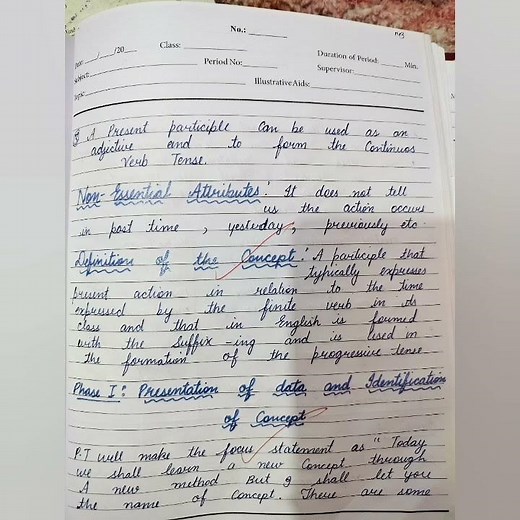 No.:
Date ___/___/20___ Class: Duration of Period: Min.
Subject: Period No: Supervisor:
Topic: Illustrative Aids:
A Present participle can be used as an
adjective and to form the Continuos
Verb Tense.
Non-Essential Attributes: It does not tell
us the action occurs
in past time, yesterday, previously etc.
Definition of the Concept: A participle that
typically expresses
present action in relation to the time
expressed by the finite verb in its
class and that in English is formed
with the suffix -ing and is used in
the formation of the progressive tense
Phase I: Presentation of data and Identification
of Concept
P.T will make the focus statement as "Today
we shall learn a new Concept through
A new method But I shall let you
the name of Concept. There are some